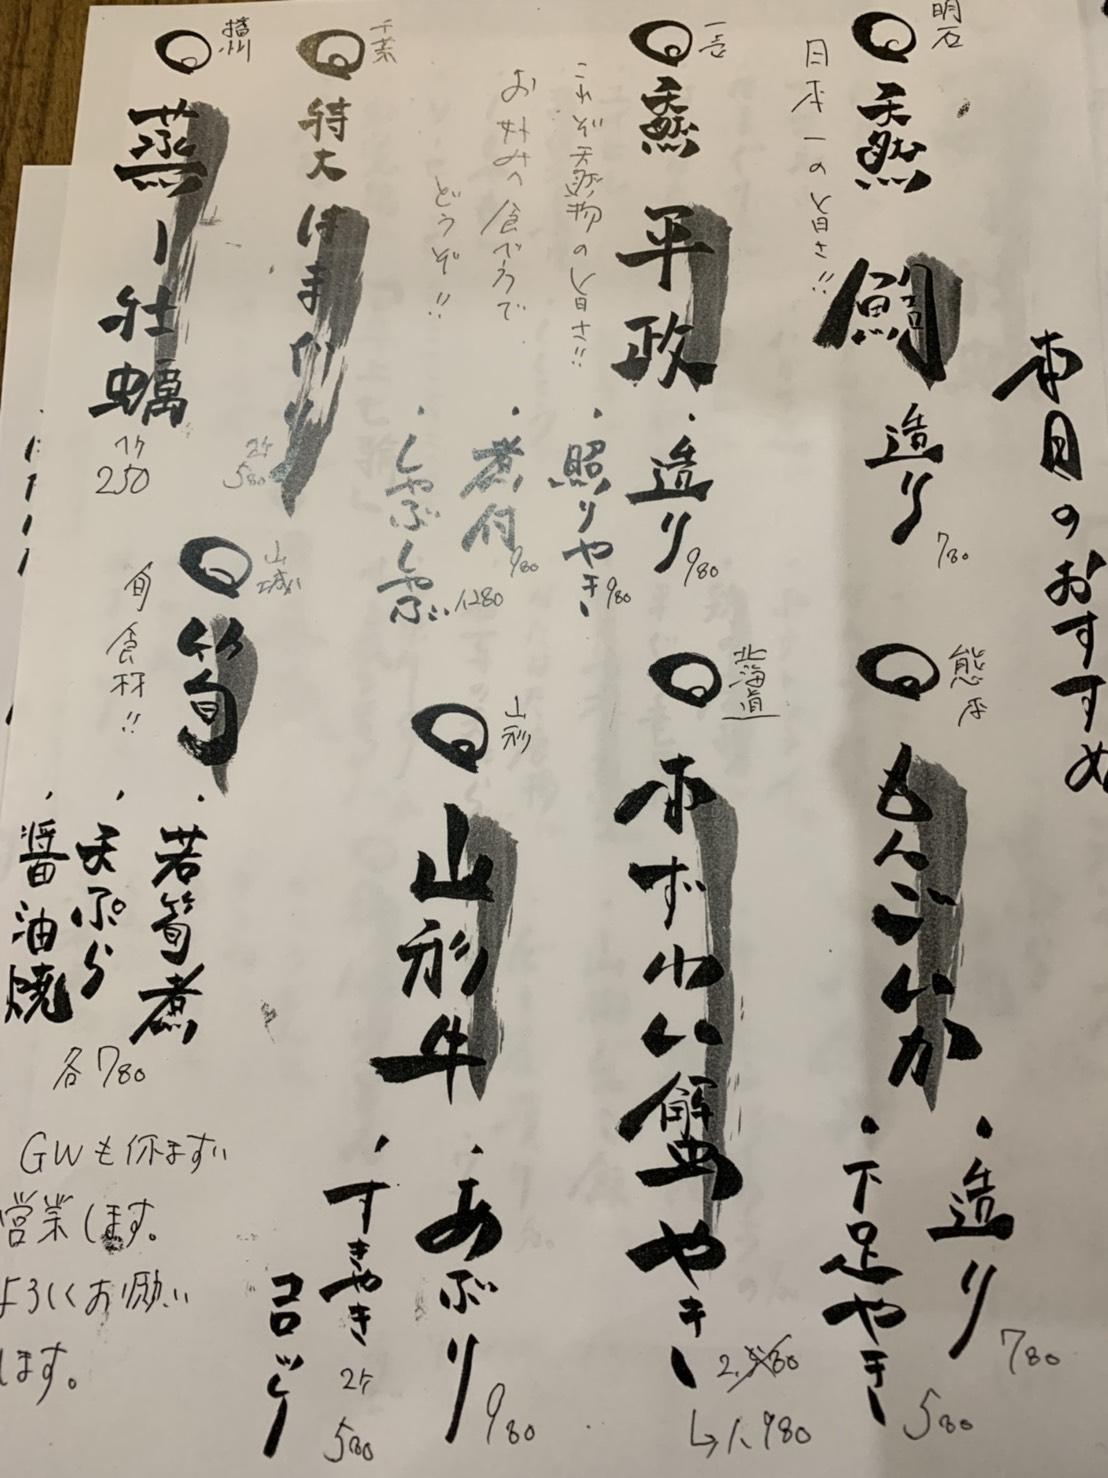 本日のおすすめ
明石
天然 鯛 造り 780
日本一の旨さ!!
天然 平政
これぞ天然物の旨さ!!
お好みの食べ方で
どうぞ!!
・造り 980
・照りやき 980
・煮付 980
・しゃぶしゃぶ 1,280
千葉
特大 はまぐり
2ケ 580
播州
蒸し牡蠣
1ケ 250
熊本
もんごいか
・造り 780
・下足やき 580
北海道
本ずわい蟹やき
→1,980
山形
山形牛
・あぶり 980
・すきやき
コロッケ
2ケ 580
山城
筍
旬食材!!
・若筍煮
・天ぷら
・醤油焼
各780
GWも休まずい
営業します。
よろしくお願い
します。